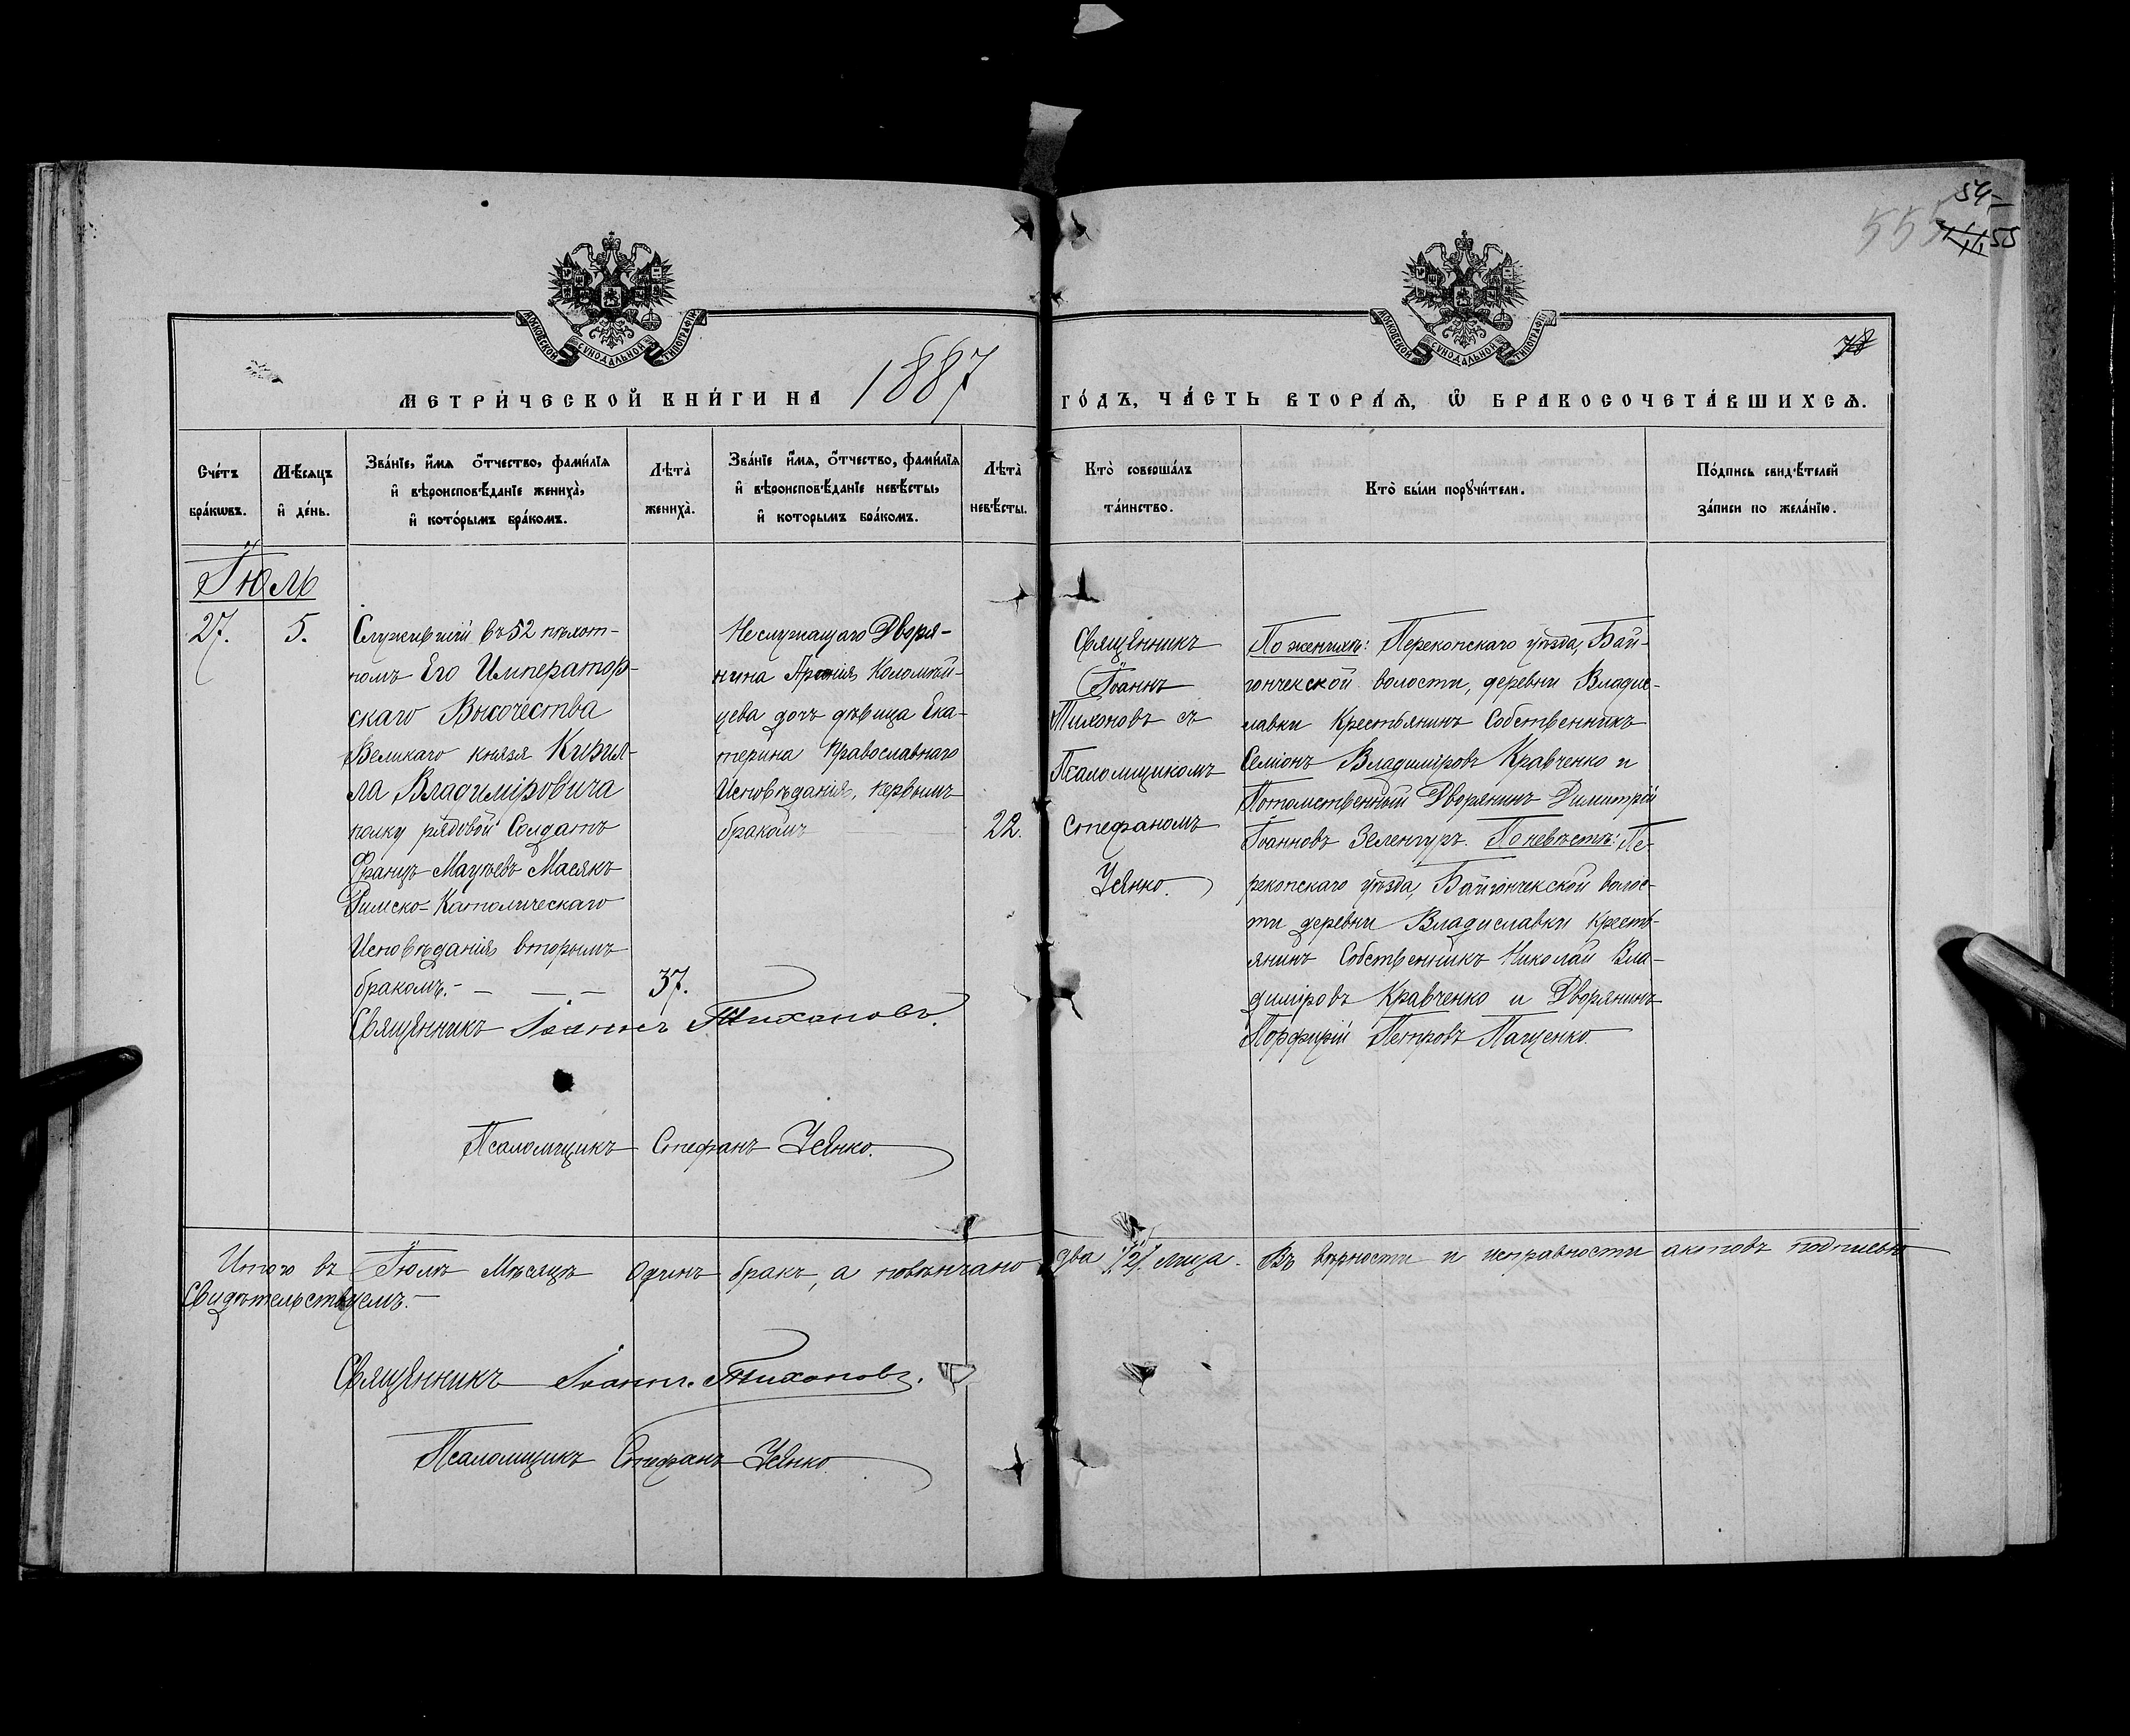 54
555 55
МОСКОВСКОЙ СѴНОДАЛЬНОЙ ТИПОГРАФІИ
МОСКОВСКОЙ СѴНОДАЛЬНОЙ ТИПОГРАФІИ
78
МЕТРИ́ЧЕСКОЙ КНИ́ГИ НА 1887 ГО́ДЪ, ЧА́СТЬ ВТОРА́Ѧ, Ѡ БРАКОСОЧЕТА́ВШИХСѦ.
Сче́тъ
бра́кѡвъ.
Мѣ́сяцъ
и҆ де́нь.
Зва́нїе, и҆́мя о҆́тчество, фами́лїя
и҆ вѣроисповѣ́данїе жениха̀,
и҆ кото́рымъ бра́комъ.
Лѣта̀
жениха̀.
Зва́нїе и҆́мя, о҆́тчество, фами́лїя
и҆ вѣроисповѣ́данїе невѣ́сты,
и҆ которымъ бра́комъ.
Лѣта̀
невѣ́сты.
Кто̀ соверша́лъ
та́инство.
Кто̀ бы́ли порꙋчи́тели.
По́дпись свидѣ́телей
за́писи по жела́нїю.
Іюль
27.
5.
Служившій въ 52 пѣхот-
номъ Его Император-
скаго Высочества
Великаго князя Кирил-
ла Владиміровича
полку рядовой Солдатъ
Францъ Мацѣевъ Масякъ
Римско-Католическаго
Исповѣданія вторымъ
бракомъ.- — — —
37.
Неслужащаго Дворя-
нина Арсенія Коломѣй-
цева дочь дѣвица Ека-
терина Православнаго
Исповѣданія, первымъ
бракомъ
22.
Священникъ
Іоаннъ
Тихоновъ съ
Псаломщикомъ
Стефаномъ
Уянко.
По женихѣ: Перекопскаго уѣзда, Бай-
гончекской волости, деревни Владис-
лавки Крестьянинъ Собственникъ
Семіонъ Владиміровъ Кравченко и
Потомственный Дворянинъ Димитрій
Іоанновъ Зеленгуръ. По невѣстѣ: Пе-
рекопскаго уѣзда, Байгончекской волос-
ти деревни Владиславки Кресть-
янинъ Собственникъ Николай Вла-
диміровъ Кравченко и Дворянинъ
Порфирій Петровъ Пащенко.
Священникъ Іоаннъ Тихоновъ.
Псаломщикъ Стефанъ Уянко.
Итого въ Іюлѣ Мѣсяцѣ одинъ бракъ, а повѣнчано два /2/ лица. Въ вѣрности и исправности актовъ подписью
Свидѣтельствуемъ.—
Священникъ Іоаннъ Тихоновъ.
Псаломщикъ Стефанъ Уянко.